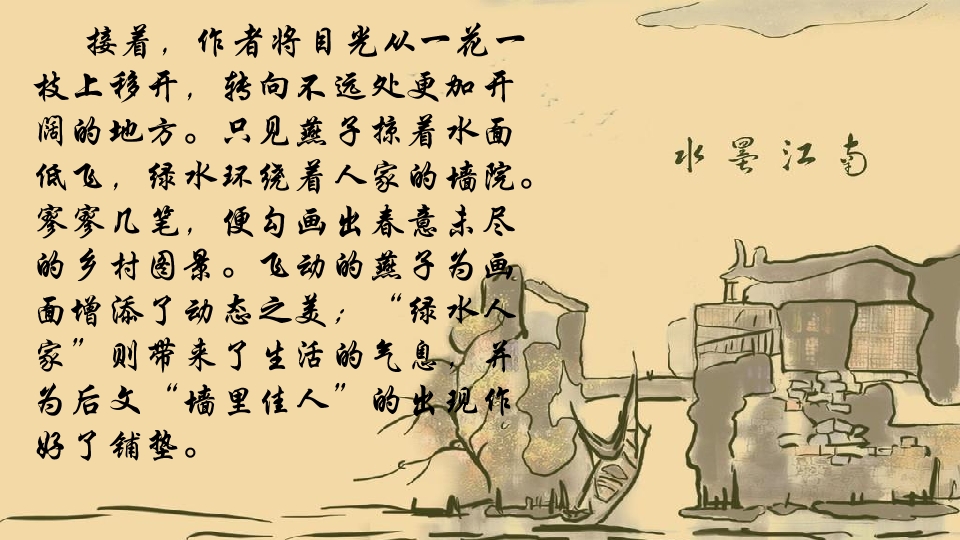 接着，作者将目光从一花一
枝上移开，转向不远处更加开
阔的地方。只见燕子掠着水面
低飞，绿水环绕着人家的墙院。
寥寥几笔，便勾画出春意未尽
的乡村图景。飞动的燕子为画
面增添了动态之美；“绿水人
家”则带来了生活的气息，并
为后文“墙里佳人”的出现作
好了铺垫。
水墨江南